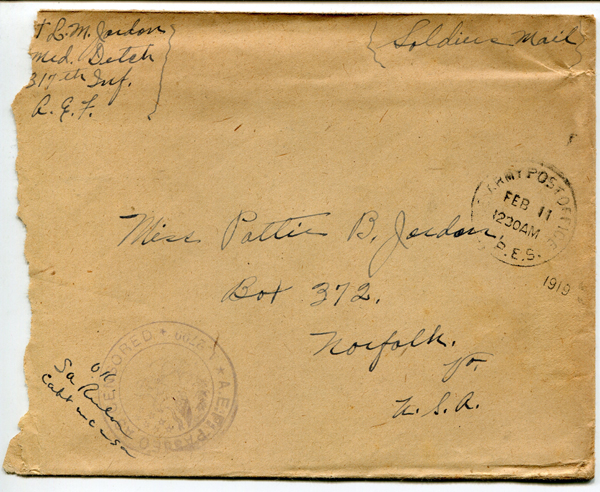 L. M. Jordan
Med. Detch
317th Inf.
A. E. F.
Soldiers Mail
ARMY POST OFFICE
FEB 11
1230AM
P.E.S.
1919
Miss Pattie B. Jordan,
Box 372.
Norfolk.
Va.
U. S. A.
A.E.F. PASSED AS CENSORED
OK